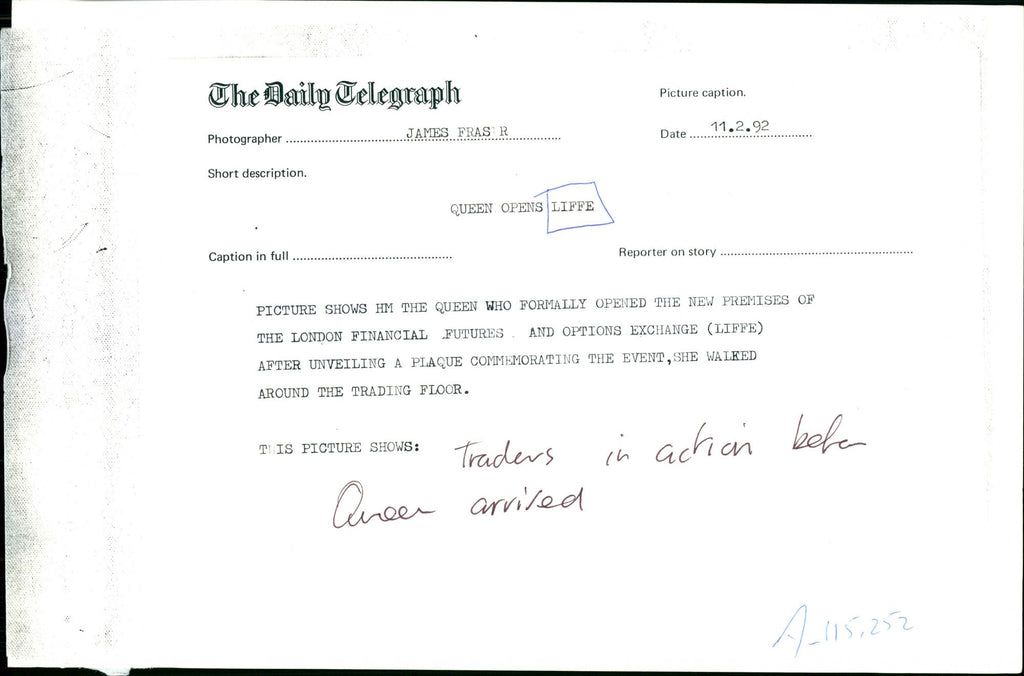 The Daily Telegraph
Picture caption.
Photographer JAMES FRAS R
Date 11.2.92
Short description.
QUEEN OPENS LIFFE
Caption in full
Reporter on story
PICTURE SHOWS HM THE QUEEN WHO FORMALLY OPENED THE NEW PREMISES OF
THE LONDON FINANCIAL FUTURES AND OPTIONS EXCHANGE (LIFFE)
AFTER UNVEILING A PLAQUE COMMEMORATING THE EVENT,SHE WALKED
AROUND THE TRADING FLOOR.
THIS PICTURE SHOWS: Traders in action before
Queen arrived
A-115,252